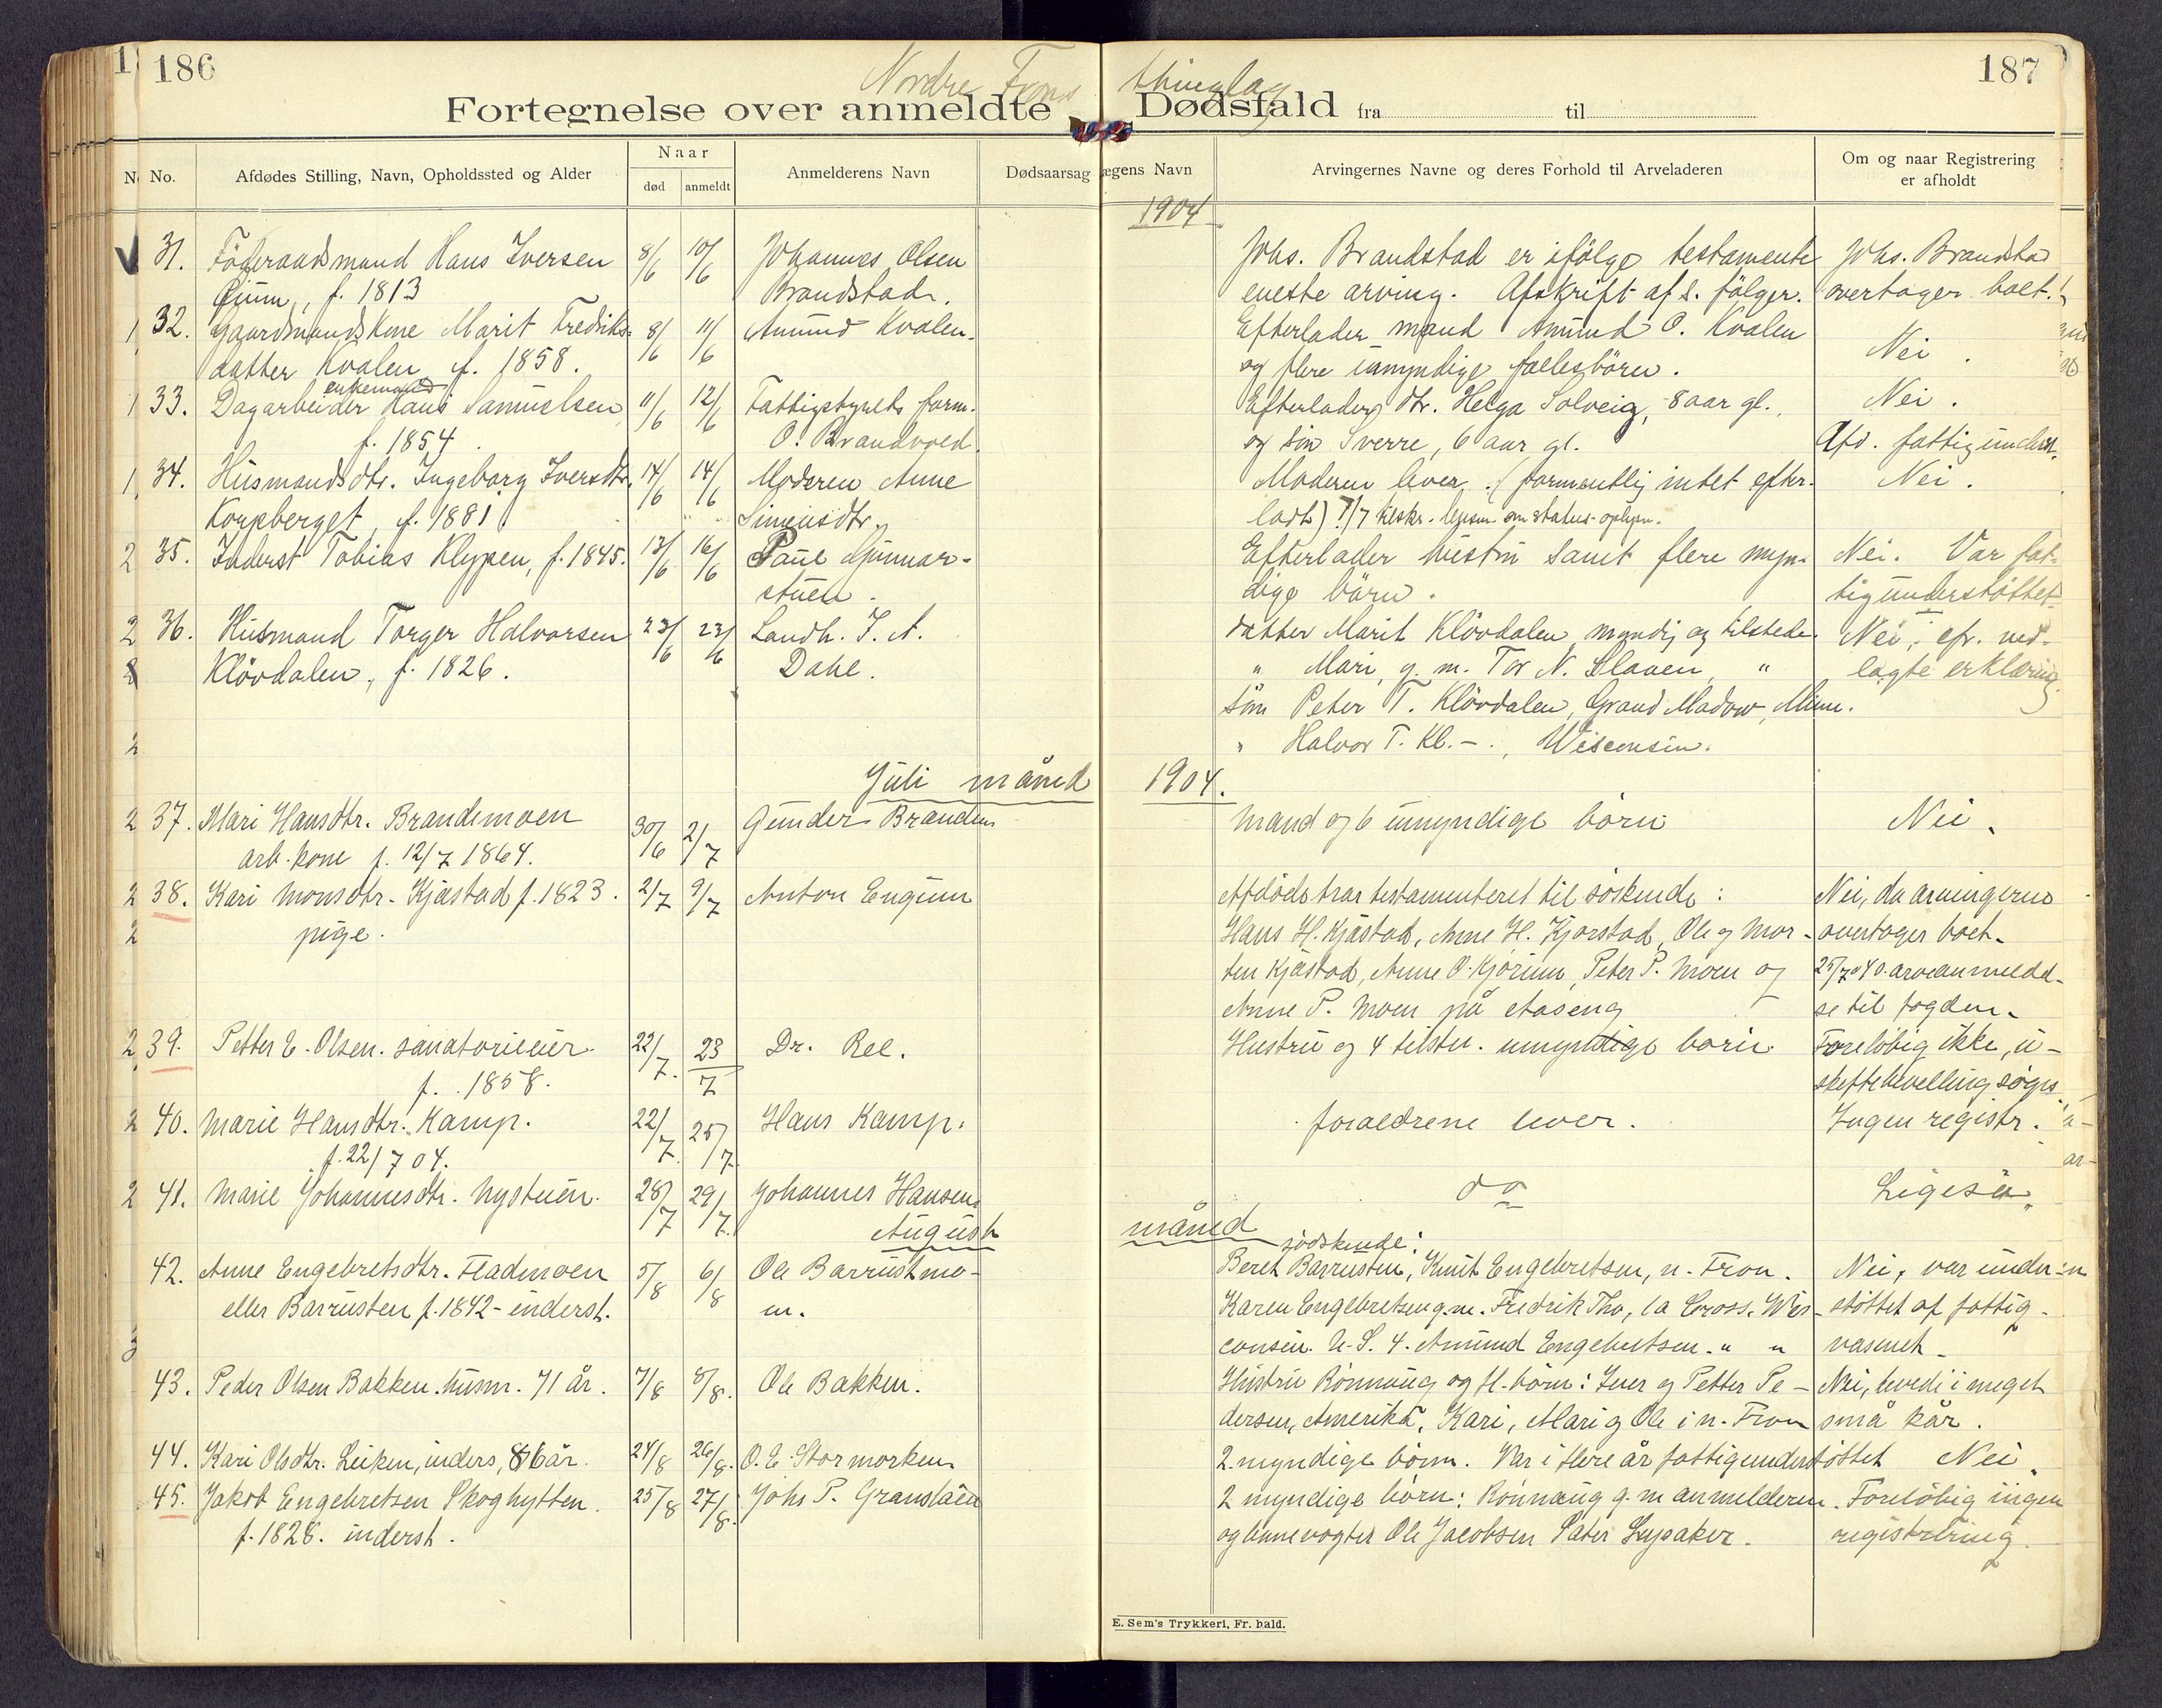 186
187
Nordre Frons thinglag
Fortegnelse over anmeldte Dødsfald fra til
No. Afdødes Stilling, Navn, Opholdssted og Alder Naar død anmeldt Anmelderens Navn Dødsaarsag ægens Navn Arvingernes Navne og deres Forhold til Arveladeren Om og naar Registrering er afholdt
1904
31. Föderaadsmand Hans Iversen 8/6 10/6 Johannes Olsen Johs. Brandstad er ifölge testamente Johs. Brandstad
f. 1813 Brandstad. eneste arving. Afskrift af s. fölger. overtager boet.
32. Gaardmandskone Marit Fredriks- 8/6 11/6 Amund Kvalen. Efterlader mand Amund O. Kvalen Nei.
datter Kvalen f. 1858. og flere umyndige fællesbörn.
33. Dagarbeider enkemand Hans Samuelsen 11/6 12/6 Fattigstyrets form. Efterlader dtr. Helga Solveig, 8 aar gl., Nei.
f. 1854 O. Brandvold og sön Sverre, 6 aar gl. Afd. fattigunderst.
34. Husmandsdtr. Ingeborg Iversdtr. 14/6 14/6 Moderen Anne Moderen lever. (formentlig intet efter- Nei.
Korpberget, f. 1881. Simensdtr. ladt) 7/7 tilskr. lensm. om status-oplysn.
35. Inderst Tobias Klypen, f. 1845. 13/6 16/6 Paul Gunnar- Efterlader hustru samt flere myn- Nei. Var fat-
stuen. dige börn. tigunderstöttet.
36. Husmand Torger Halvorsen 23/6 23/6 Landh. J. A. datter Marit Klövdalen, myndig og tilstede. Nei, cfr. ved-
Klövdalen, f. 1826. Dahl. " Mari, g. m. Tor N. Slaaen, " lagte erklæring.
Sön Peter T. Klövdalen, Grand Madow, Minn.
" Halvor T. Kl.-., Wisconsin.
Juli måned 1904.
37. Mari Hansdtr. Brandsmoen 30/6 2/7 Gunder Branden Mand og 6 umyndige börn Nei.
arb. kone f. 12/7 1864.
38. Kari Monsdtr. Kjæstad f. 1823. 2/7 9/7 Anton Engum Afdöde har testamenteret til söskende: Nei, da arvingerne
pige. Hans H. Kjæstad, Anne H. Kjorstad, Ole og Mor- overtager boet.
ten Kjæstad, Anne O. Kjorum, Peter P. Moen og 25/7 04 o. arveanmeldel-
Anne P. Moen på Aaseng se til fogden.
39. Petter E. Olsen. sanatorieeier. 22/7. 23/7 Dr. Ree. Hustru og 4 tilstr. umyndige börn. Foreløbig ikke, u-
f. 1858. skiftebevilling söges.
40. Marie Hansdtr. Kamp. 22/7. 25/7. Hans Kamp. foraeldrene lever. Ingen registr.
f. 22/7 04.
41. Marie Johannesdtr. Nystuen. 28/7 29/7. Johannes Hansen do Ligeså.
August måned
södskende:
42. Anne Engebretsdtr. Fladmoen 5/8 6/8 Ole Barrustmo- Beret Barrusten, Knut Engebretsen, n. Fron. Nei, var under-
eller Barrusten f. 1842 - inderst. en. Karen Engebretsen g.m. Fredrik Tho, la Cross. Wis- støttet af fattig-
consin. U.S. 4. Amund Engebretsen. " " væsenet.
43. Peder Olsen Bakken. husm. 71 år. 7/8 8/8. Ole Bakken. Hustru Rönnaug og 4 börn: Iver og Petter Pe- Nei, levede i meget
dersen, Amerika, Kari, Mari og Ole i n. Fron små kår.
44. Kari Olsdtr. Leiken, inders, 86 år. 24/8 26/8. O. E. Stormorken 2 myndige börn. Var i flere år fattigunderstöttet Nei.
45. Jakob Engebretsen Skoghytten. 25/8 27/8. Johs P. Granslåen 2 myndige börn: Rönnaug g. m anmelderen. Foreløbig ingen
f. 1828. inderst. og linnevogter Ole Jacobsen Sater Lysaker. registrering.
E. Sem's Trykkeri, Fr. hald.